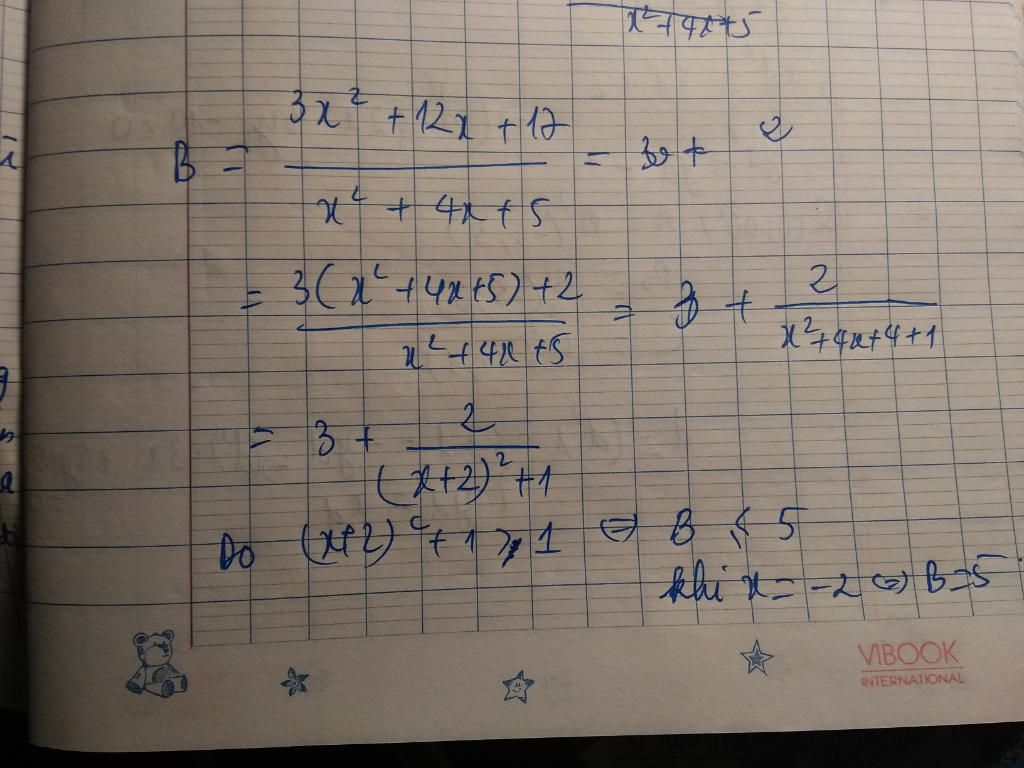 x²+4x+5
B = (3x² + 12x + 17)/(x² + 4x + 5) = 3 + 2
= (3(x² + 4x+5) + 2)/(x² + 4x + 5) = 3 + 2/(x²+4x+4+1)
= 3 + 2/((x+2)² + 1)
Do (x+2)² + 1 ⩾ 1 ⇔ B ⩽ 5
khi x = -2 ⇔ B = 5
VIBOOK
INTERNATIONAL